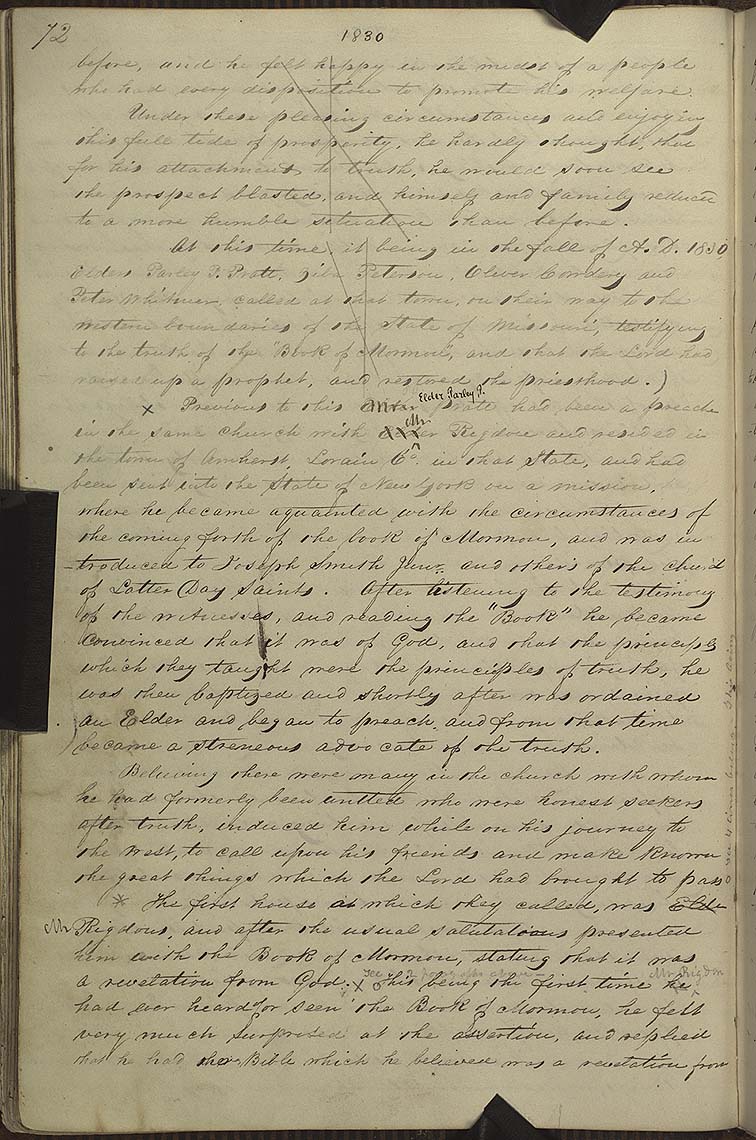 72
1830
before, and he felt happy in the midst of a people
who had every disposition to promote his welfare.
Under these pleasing circumstances and enjoying
this full tide of prosperity, he hardly thought, that
for his attachment to truth, he would soon see
the prospect blasted, and himself and family reduced
to a more humble situation than before.
At this time, it being in the fall of A. D. 1830,
Elders Parley P. Pratt, Ziba Peterson, Oliver Cowdery and
Peter Whitmer, called at that town, on their way to the
western boundaries of the State of Missouri, testifying
to the truth of the "Book of Mormon", and that the Lord had
raised up a prophet, and restored the priesthood.)
Elder Parley P.
x Previous to this Pratt had been a preacher
Mr.
in the same church with Rigdon and resided in
the town of Amherst, Lorain Co. in that State, and had
been sent into the State of New York on a mission,
where he became aquainted with the circumstances of
the coming forth of the book of Mormon, and was in
-troduced to Joseph Smith Junr. and other's of the church
of Latter Day Saints. After listening to the testimony
of the witnesses, and reading the "Book" he became
convinced that it was of God, and that the principles
which they taught were the principles of truth, he
was then baptized and shortly after was ordained
an Elder and began to preach, and from that time
) became a streneous advocate of the truth.
Believing there were many in the church with whom
he had formerly been united who were honest seekers
after truth, induced him while on his journey to
the west, to call upon his friends and make known
the great things which the Lord had brought to pass
* The first house at which they called, was Elde
Mr Rigdons, and after the usual salutations presented
him with the Book of Mormon, stating that it was
See 2 pages
Mr. Rigdon
a revelation from God. x This being the first time he
had ever heard of or seen the Book of Mormon, he felt
very much surprised at the assertion, and replied
that he had the Bible which he believed was a revelation from